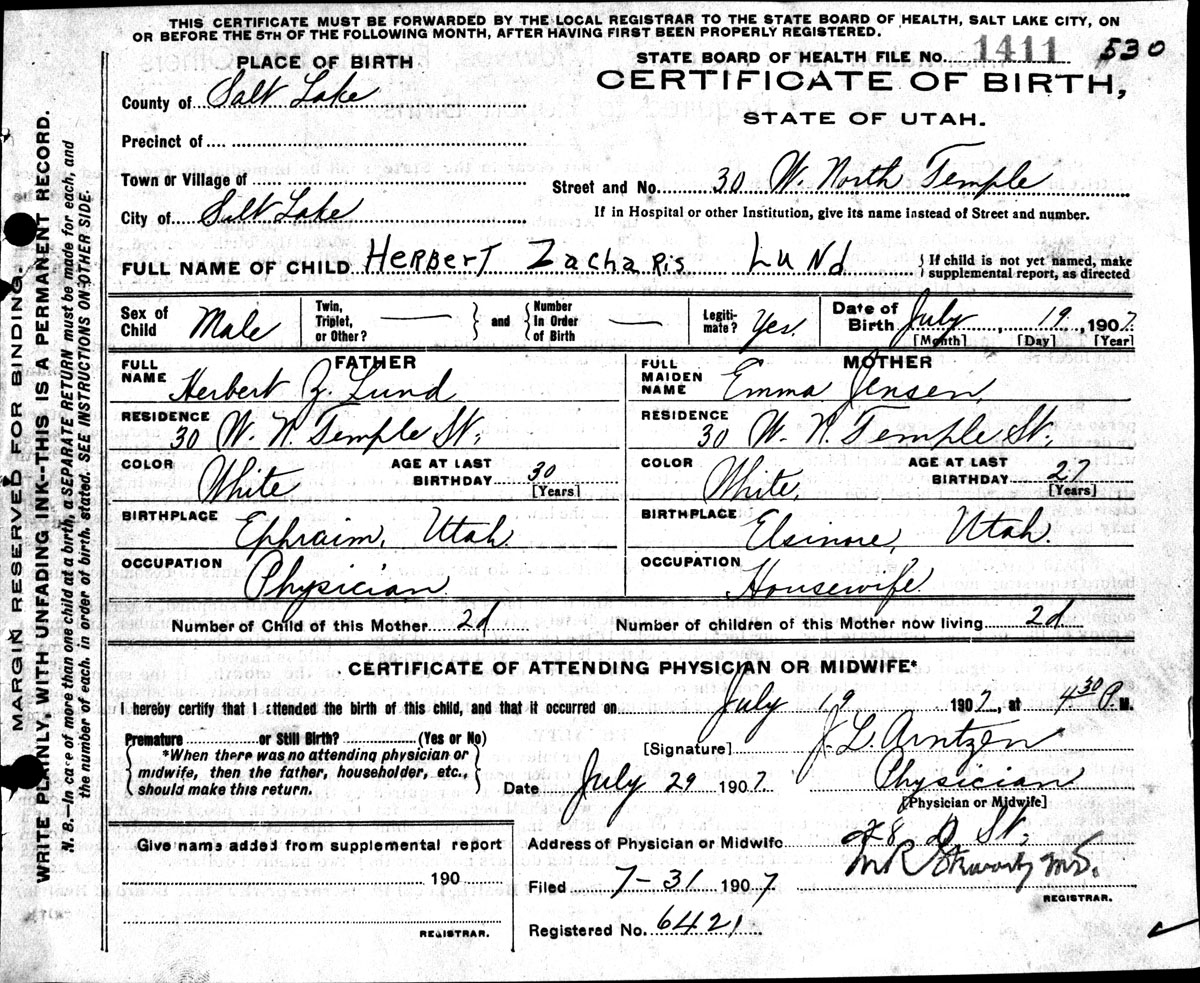 THIS CERTIFICATE MUST BE FORWARDED BY THE LOCAL REGISTRAR TO THE STATE BOARD OF HEALTH, SALT LAKE CITY, ON
OR BEFORE THE 5TH OF THE FOLLOWING MONTH, AFTER HAVING FIRST BEEN PROPERLY REGISTERED.
PLACE OF BIRTH
STATE BOARD OF HEALTH FILE No. 1411 530
County of Salt Lake
CERTIFICATE OF BIRTH,
STATE OF UTAH.
Precinct of
Town or Village of
Street and No. 30 W. North Temple
City of Salt Lake
If in Hospital or other Institution, give its name instead of Street and number.
FULL NAME OF CHILD HerberT Zacharis LuNd
If child is not yet named, make
supplemental report, as directed
Sex of Child Male
Twin, Triplet, or Other? — and Number In Order of Birth —
Legiti- mate? Yes.
Date of Birth July, 19, 1907.
[Month] [Day] [Year]
FATHER
FULL NAME Herbert Z. Lund
RESIDENCE 30 W. N. Temple St.
COLOR White
AGE AT LAST BIRTHDAY 30 [Years]
BIRTHPLACE Ephraim, Utah.
OCCUPATION Physician
MOTHER
FULL MAIDEN NAME Emma Jensen.
RESIDENCE 30 W. N. Temple St.
COLOR White.
AGE AT LAST BIRTHDAY 27 [Years]
BIRTHPLACE Elsinore, Utah.
OCCUPATION Housewife.
Number of Child of this Mother 2d
Number of children of this Mother now living 2d
CERTIFICATE OF ATTENDING PHYSICIAN OR MIDWIFE*
I hereby certify that I attended the birth of this child, and that it occurred on July 19 1907, at 4 30 P. M.
Premature or Still Birth? (Yes or No)
*When there was no attending physician or
midwife, then the father, householder, etc.,
should make this return.
[Signature] J. L. Arntzen
Date July 29 1907.
Physician
[Physician or Midwife]
Give name added from supplemental report
190
REGISTRAR.
Address of Physician or Midwife D St.
Filed 7-31 1907.
REGISTRAR.
Registered No. 6421
MARGIN RESERVED FOR BINDING.
WRITE PLAINLY, WITH UNFADING INK-THIS IS A PERMANENT RECORD.
N. B.—In case of more than one child at a birth, a SEPARATE RETURN must be made for each, and
the number of each, in order of birth, stated. SEE INSTRUCTIONS ON OTHER SIDE.